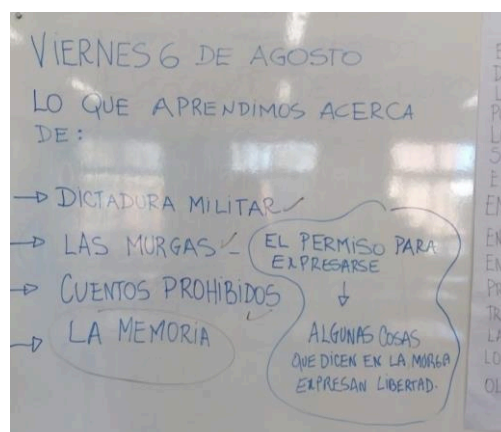 VIERNES 6 DE AGOSTO
LO QUE APRENDIMOS ACERCA
DE:
→ DICTADURA MILITAR ✓
→ LAS MURGAS ✓ -
→ CUENTOS PROHIBIDOS ✓
→ LA MEMORIA
EL PERMISO PARA
EXPRESARSE
↓
ALGUNAS COSAS
QUE DICEN EN LA MURGA
EXPRESAN LIBERTAD.